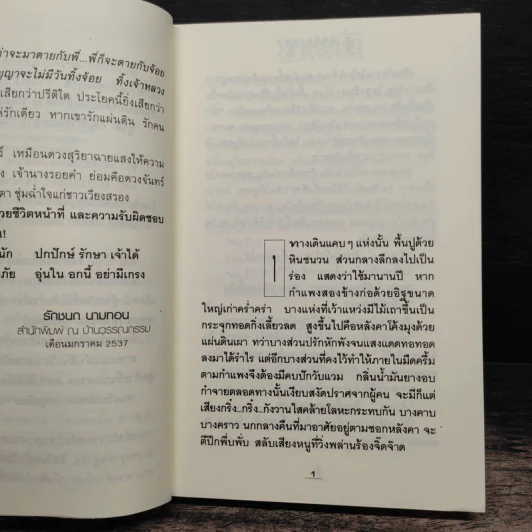 ว่าจะมาตายกับพี่...พี่ก็จะตายกับจ้อย
ญญาจะไม่มีวันทิ้งจ้อย ทิ้งเจ้าหลวง
เสียกว่าปรีติใด ประโยคนี้ยิ่งเสียกว่า
รักเดียว หากเขารักแผ่นดิน รักคน
ร์ เหมือนดวงสุริยาฉายแสงให้ความ
ง เจ้านางรอยคำ ย่อมคือดวงจันทร์
ตา ชุ่มฉ่ำใจแก่ชาวเวียงสรอง
วยชีวิตหน้าที่ และความรับผิดชอบ
น!
นัก ปกปักษ์ รักษา เจ้าได้
ภัย อุ่นใน อกนี้ อย่ามีเกรง
รักชนก นามทอน
สำนักพิมพ์ ณ บ้านวรรณกรรม
เดือนมกราคม 2537
1
ทางเดินแคบๆ แห่งนั้น พื้นปูด้วย
หินชนวน ส่วนกลางลึกลงไปเป็น
ร่อง แสดงว่าใช้มานานปี หาก
กำแพงสองข้างก่อด้วยอิฐขนาด
ใหญ่เก่าคร่ำคร่า บางแห่งที่เว้าแหว่งมีไม้เถาขึ้นเป็น
กระจุกทอดกิ่งเลี้ยวลด สูงขึ้นไปคือหลังคาโค้งมุงด้วย
แผ่นดินเผา ทว่าบางส่วนปรักหักพังจนแสงแดดทอทอด
ลงมาได้รำไร แต่อีกบางส่วนที่คงไว้ทำให้ภายในมืดครึ้ม
ตามกำแพงจึงต้องมีคบปักวับแวม กลิ่นน้ำมันยางอบ
กำจายตลอดทางนั้นเงียบสงัดปราศจากผู้คน จะมีก็แต่
เสียงกริ่ง..กริ่ง..กังวานใสคล้ายโลหะกระทบกัน บางคาบ
บางคราว นกกลางคืนที่มาอาศัยอยู่ตามซอกหลังคา จะ
ตีปีกพึ่บพั่บ สลับเสียงหนูที่วิ่งพล่านร้องจี๊ดจ๊าด
1